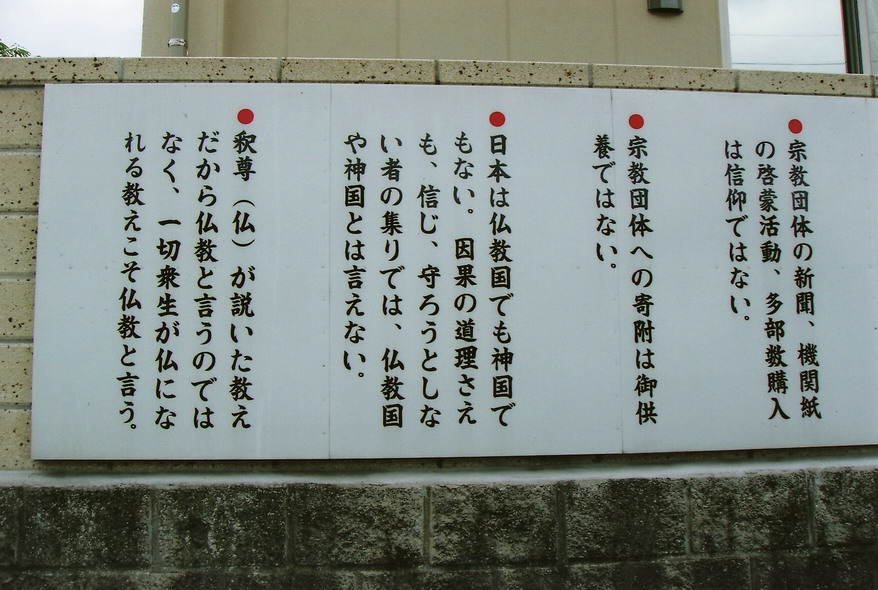 ●宗教団体の新聞、機関紙
の啓蒙活動、多部数購入
は信仰ではない。
●宗教団体への寄附は御供
養ではない。
●日本は仏教国でも神国で
もない。因果の道理さえ
も、信じ、守ろうとしな
い者の集りでは、仏教国
や神国とは言えない。
●釈尊（仏）が説いた教え
だから仏教と言うのでは
なく、一切衆生が仏にな
れる教えこそ仏教と言う。